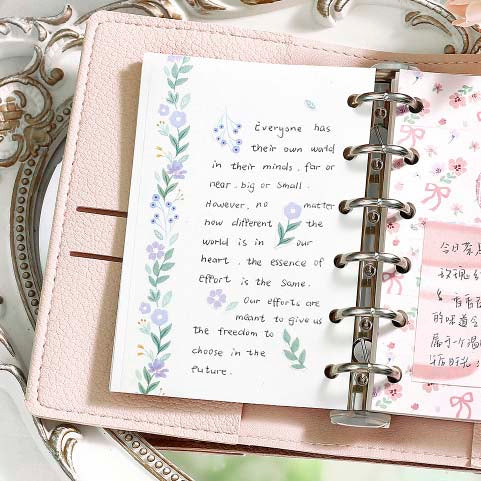 Everyone has
their own world
in their minds. far or
near. big or small.
However, no matter
how different the
world is in our
heart. the essence of
effort is the same.
Our efforts are
meant to give us
the freedom to
choose in the
future.
今日茶是
玫瑰红
香香
的味道会
属于个
午后时光